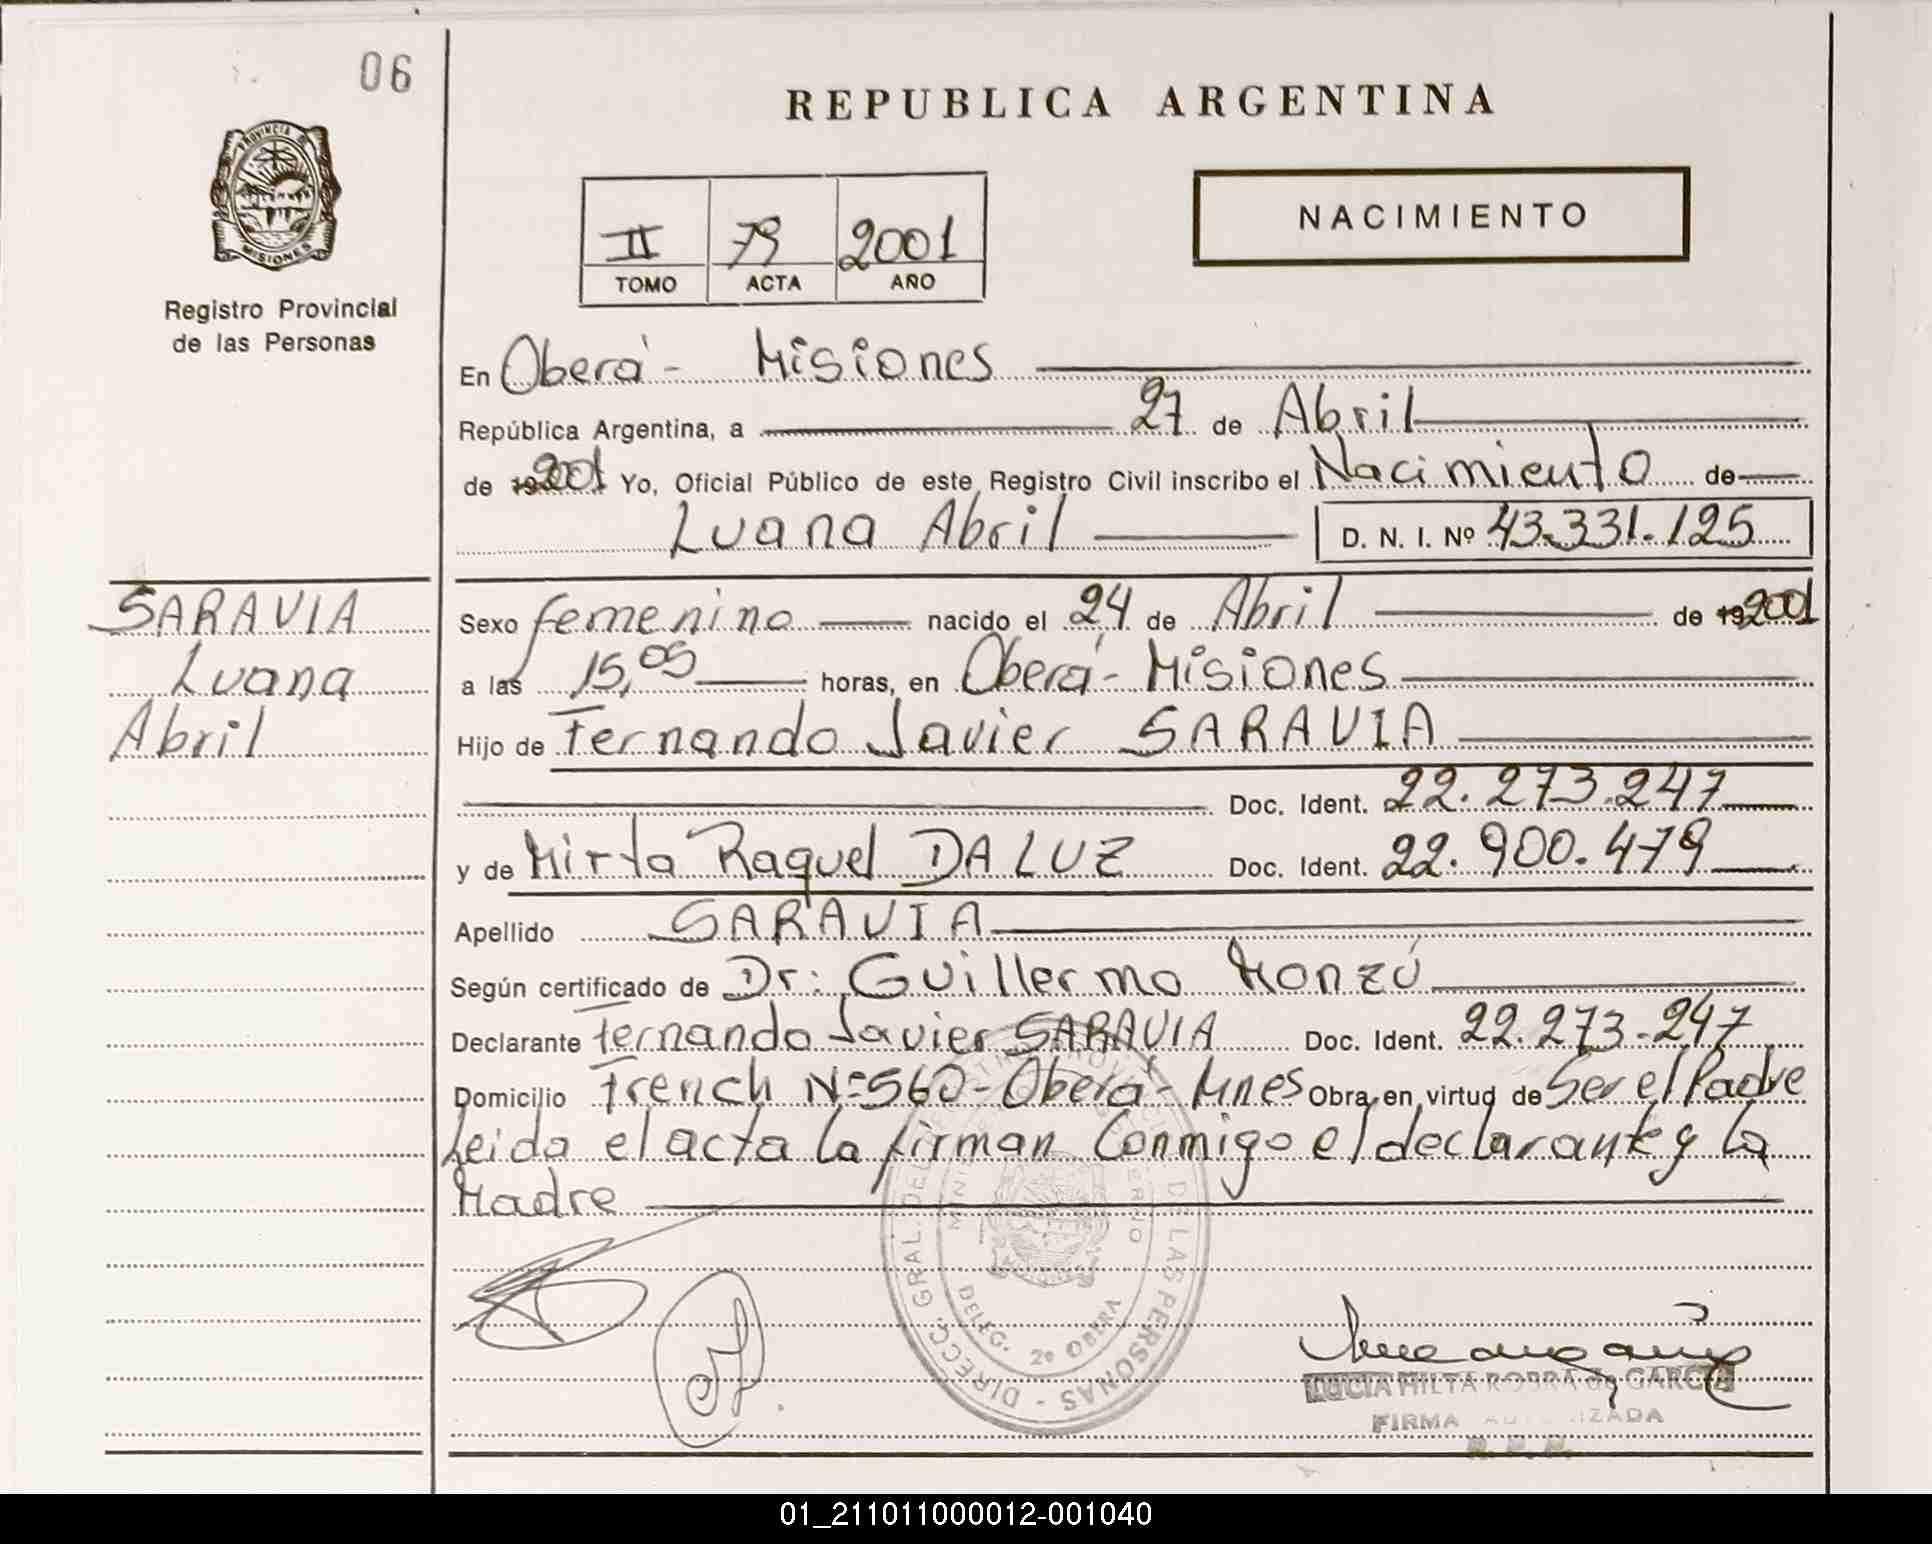 06
REPUBLICA ARGENTINA
PROVINCIA DE
MISIONES
Registro Provincial
de las Personas
II 79 2001
TOMO ACTA AÑO
NACIMIENTO
En Oberá - Misiones
República Argentina, a 27 de Abril
de 19 2001 Yo, Oficial Público de este Registro Civil inscribo el Nacimiento de
Luana Abril D. N. I. Nº 43.331.125
SARAVIA
Luana
Abril
Sexo femenino nacido el 24 de Abril de 19 2001
a las 15,05 horas, en Oberá - Misiones
Hijo de Fernando Javier SARAVIA
Doc. Ident. 22.273.247
y de Mirta Raquel DA LUZ Doc. Ident. 22.900.479
Apellido SARAVIA
Según certificado de Dr: Guillermo Monzú
Declarante Fernando Javier SARAVIA Doc. Ident. 22.273-247
Domicilio French Nº 560 - Oberá - Mnes Obra en virtud de Ser el Padre
Leida el acta la firman Conmigo el declarante y la
Madre
DIRECC. GRAL. DEL DE LAS PERSONAS -
DELEG. 2º OBERA
LUCIA MILTA ROBRA de GARCIA
FIRMA AUTORIZADA
R. P. P.
01_211011000012-001040